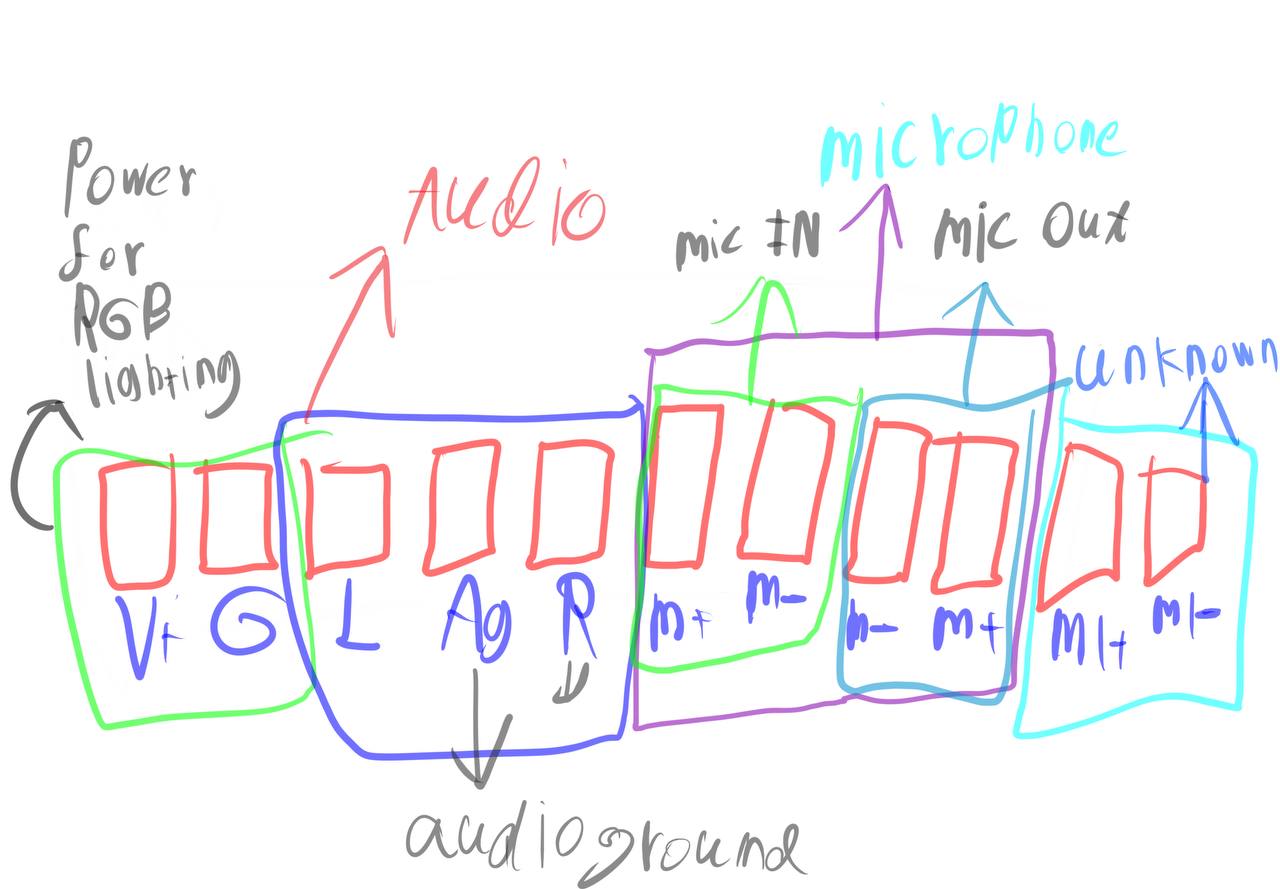 Power
for
RGB
lighting
Audio
microphone
mic IN
mic Out
unknown
V+ G L Ag R m+ m- m- m+ M1+ m1-
audioground